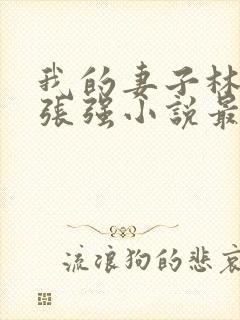 我的妻子林
張强小說最
流浪狗的悲哀